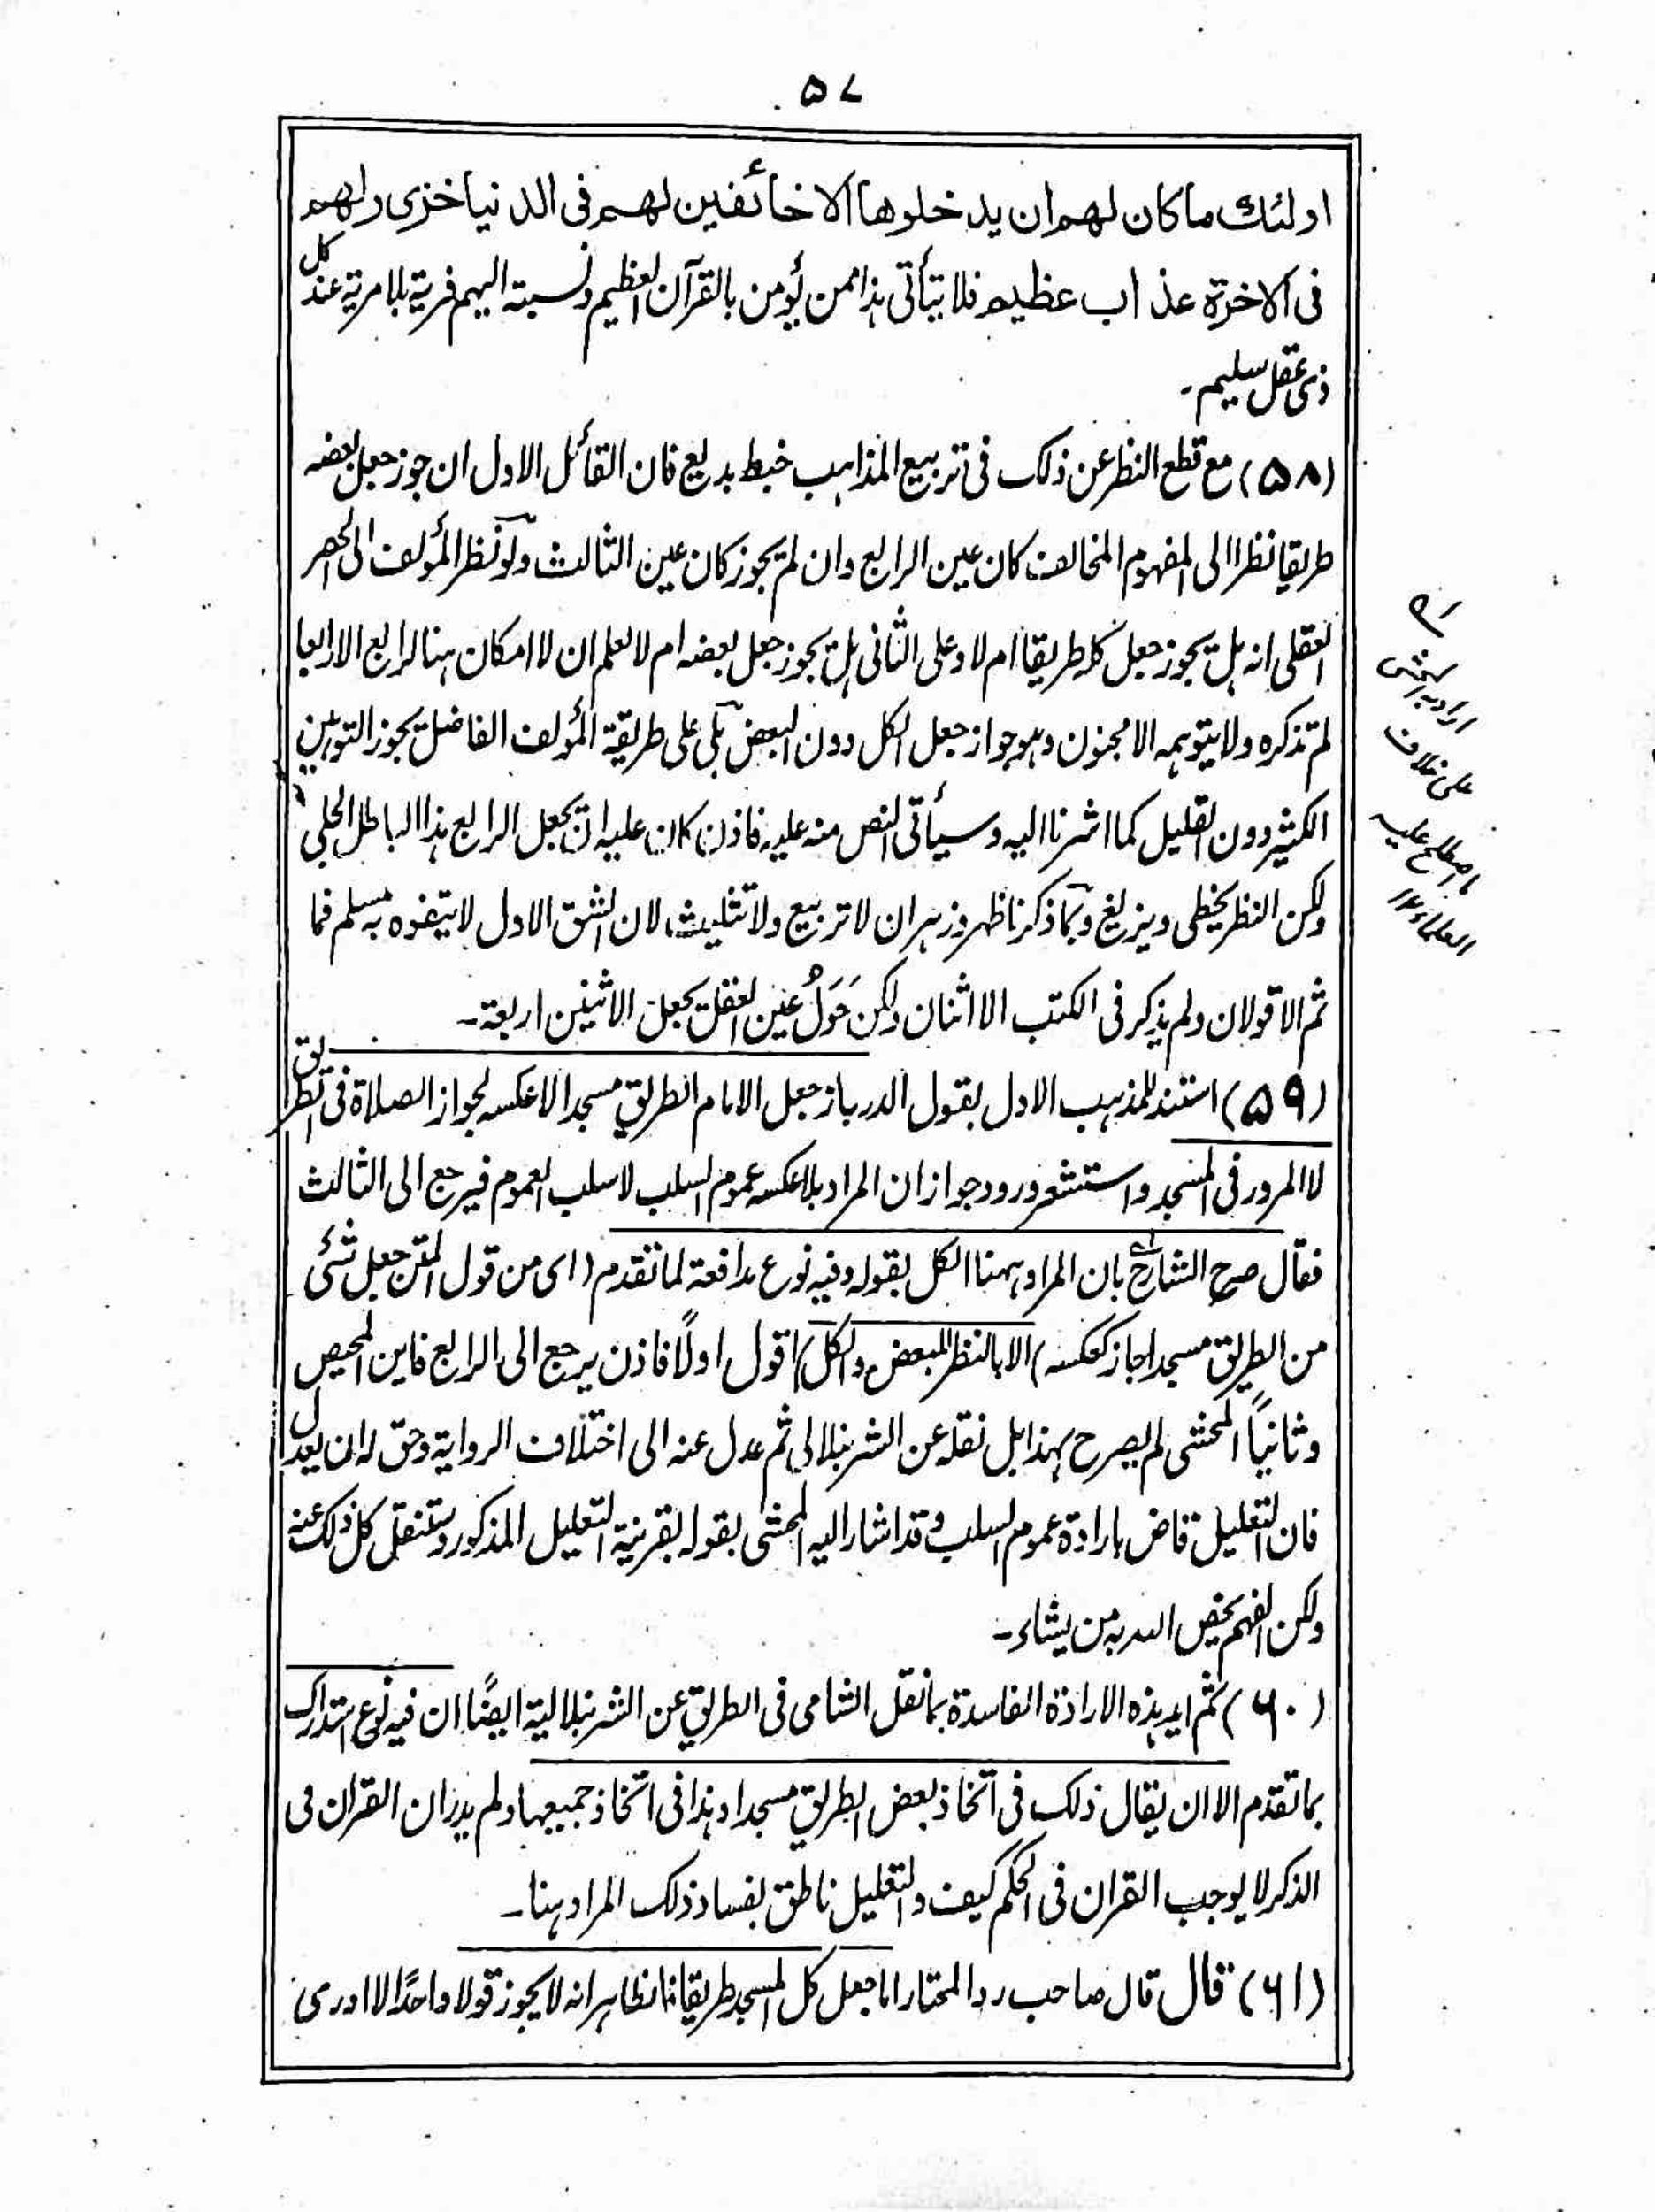 ۵۷
اولئك ما كان لهم ان يدخلوها الا خائفين لهم فى الدنيا خزى ولهم
فى الاخرة عذاب عظيم فلا يتأتى هذا ممن يؤمن بالقرآن العظيم ونسبته اليهم فرية بلا مرية عند كل
ذى عقل سليم۔
(۵۸) مع قطع النظر عن ذلك فى تربيع المذاهب خبط بديع فان القائل الاول ان جوز جعل بعضه
طريقا نظرا الى المفهوم المخالف كان عين الرابع وان لم يجوز كان عين الثالث ولو نظر المؤلف الى الحصر
العقلى انه هل يجوز جعل كله طريقا ام لا وعلى الثانى هل يجوز جعل بعضه ام لا لعلم ان لا امكان هنا لرابع الا رابعا
لم تذكره ولا يتوهمه الا مجنون وهو جواز جعل الكل دون البعض بلى على طريقة المؤلف الفاضل يجوز التوهين
الكثير دون القليل كما اشرنا اليه وسيأتى النص منه عليه فاذن كان عليه ان يجعل الرابع هذا الباطل الجلى
ولكن النظر يخطى ويزيغ وبما ذكرنا ظهر وزهر ان لا تربيع ولا تثليث لان الشق الاول لا يتفوه به مسلم فما
ثم الا قولان ولم يذكر فى الكتب الا اثنان ولكن حَوَلُ عين العقل يجعل الاثنين اربعة۔
(۵۹) استند للمذهب الاول بقول الدر باز جعل الامام الطريق مسجدا لا عكسه لجواز الصلاة فى الطريق
لا المرور فى المسجد واستشعر ورود جواز ان المراد بلا عكسه عموم السلب لا سلب العموم فيرجع الى الثالث
فقال صرح الشارح بان المراد ههنا الكل بقوله وفيه نوع مدافعة لما تقدم (اى من قول المتن جعل شئى
من الطريق مسجدا جاز كعكسه) الا بالنظر للبعض والكل) اقول اولًا فاذن يرجع الى الرابع فاين المحيص
وثانيًا المحشى لم يصرح بهذا بل نقله عن الشرنبلالى ثم عدل عنه الى اختلاف الرواية وحق له ان يعدل
فان التعليل قاض بارادة عموم السلب وقد اشار اليه المحشى بقوله بقرينة التعليل المذكور وستنقل كل ذلك عنه
ولكن الفهم يخص الله به من يشاء۔
(۶۰) ثم ايد هذه الارادة الفاسدة بما نقل الشامى فى الطريق عن الشرنبلالية ايضًا ان فيه نوع استدراك
بما تقدم الا ان يقال ذلك فى اتخاذ بعض الطريق مسجدا وهذا فى اتخاذ جميعها ولم يدر ان القران فى
الذكر لا يوجب القران فى الحكم كيف والتعليل ناطق بفساد ذلك المراد هنا۔
(۶۱) قال قال صاحب رد المحتار اما جعل كل المسجد طريقا فالظاهر انه لا يجوز قولا واحدًا لا ادرى
اراد به المحشى
على خلاف
ما اصطلح عليه
العلماء ۱۲